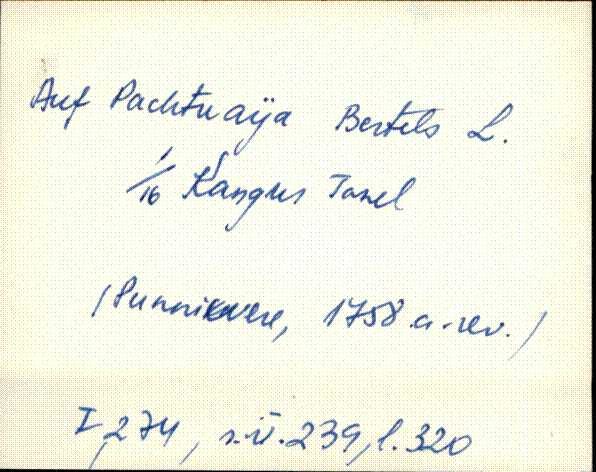 Auf Pachtuaija Bertels L.
1/16 Kangur Tanel
(Punnikvere, 1758.a.rev.)
I,274, s.-ü.239,l.320